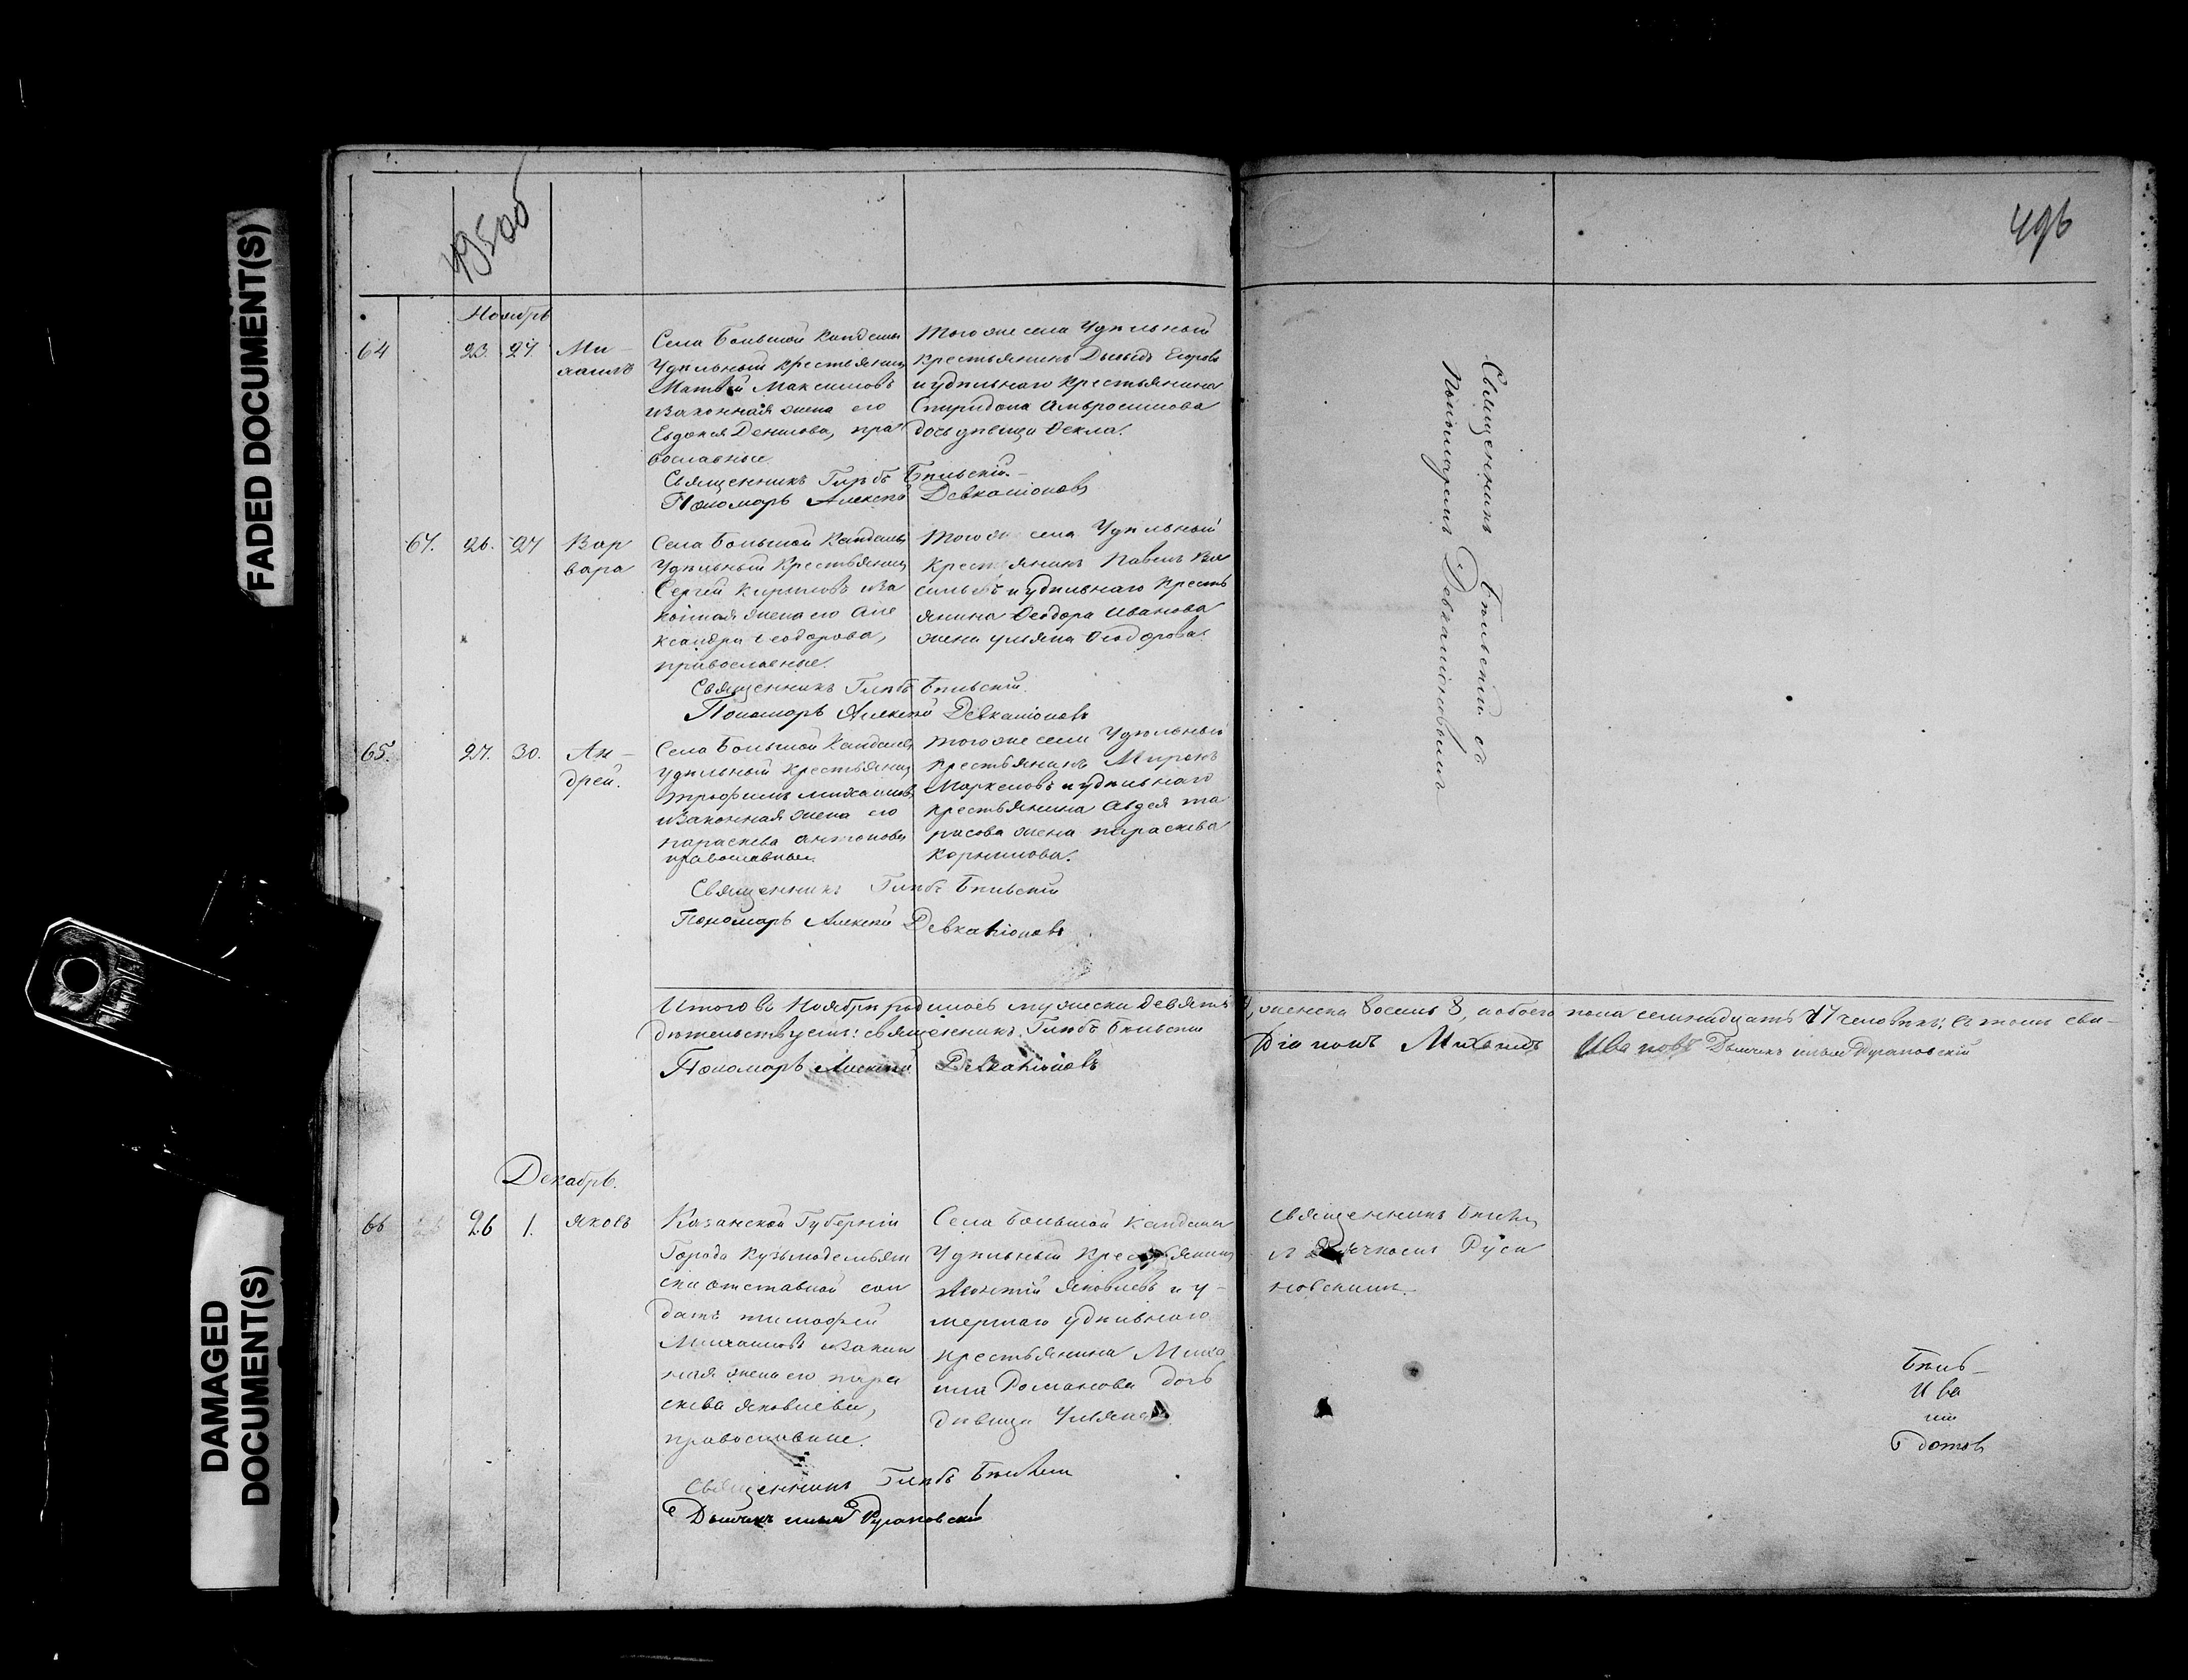 FADED DOCUMENT(S)
DAMAGED DOCUMENT(S)
495об
496
Ноябрь
64 23. 27. Ми-
хаилъ
Села Большой Кандалы
Удѣльный крестьянинъ
Матвѣй Максимовъ
и законная жена его
Евдокія Денисова, пра
вославные
Того же села Удѣльный
крестьянинъ Давыдъ Егоровъ
и удѣльнаго крестьянина
Спиридона Амвросимова
дочь дѣвица Ѳекла.
Священникъ Глѣбъ Бѣльскій.
Пономарь Алексѣй Девкаліоновъ
67. 26. 27 Вар
вара
Села Большой Кандалы
Удѣльный Крестьянинъ
Сергей Кириловъ и за
конная жена его Але
ксандра Ѳеодорова,
православные.
Того же села Удѣльный
крестьянинъ Павелъ Ва
сильевъ и удѣльнаго кресть
янина Ѳеодора Иванова
жена Ульяна Ѳеодорова.
Священникъ Глѣбъ Бѣльскій.
Пономарь Алексѣй Девкаліоновъ
65. 27. 30. Ан-
дрей.
Села Большой Кандалы
Удѣльный крестьянинъ
Трофимъ Михаиловъ
и законная жена его
параскева антонова
православные.
Того же села Удѣльный
крестьянинъ Миронъ
Маркеловъ и удѣльнаго
крестьянина Авдея та
расова жена параскева
Корнилова.
Священникъ Глѣбъ Бѣльскій
Пономарь Алексѣй Девкаліоновъ
Священникъ Бѣльскій съ
Пономаремъ Девкаліоновымъ
Итого въ Ноябрѣ родилось мужеска девять 9, женска восемь 8, а обоего пола семнадцать 17 человѣкъ; въ томъ сви-
дѣтельствуемъ: священникъ Глѣбъ Бѣльскій
Діаконъ Михаилъ Ивановъ Дьячекъ Русановскій
Пономарь Алексѣй Девкаліоновъ
Декабрь.
66 26 1. Яковъ
Казанской Губерніи
Города Кузьмодемьян
ска отставной сол
датъ тимофей
Михаиловъ и закон
ная жена его пара
скева Яковлева,
православные.
Села Большой Кандалы
Удѣльный крестьянинъ
Леонтій Яковлевъ и у-
мершаго удѣльнаго
крестьянина Миха
ила Романова дочь
дѣвица Ульяна
Священникъ Глѣбъ Бѣльскій
Дьячекъ Русановскій
священникъ
съ дьячкомъ Руса
новскимъ.
Бѣль-
Ива